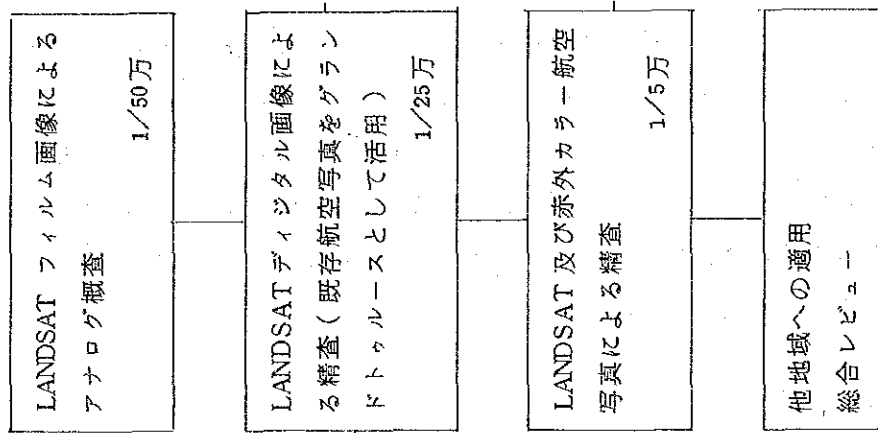 LANDSAT フィルム画像による
アナログ概査
1/50万
LANDSATディジタル画像によ
る精査（既存航空写真をグラン
ドトゥルースとして活用）
1/25万
LANDSAT 及び赤外カラー航空
写真による精査
1/5万
他地域への適用
総合レビュー